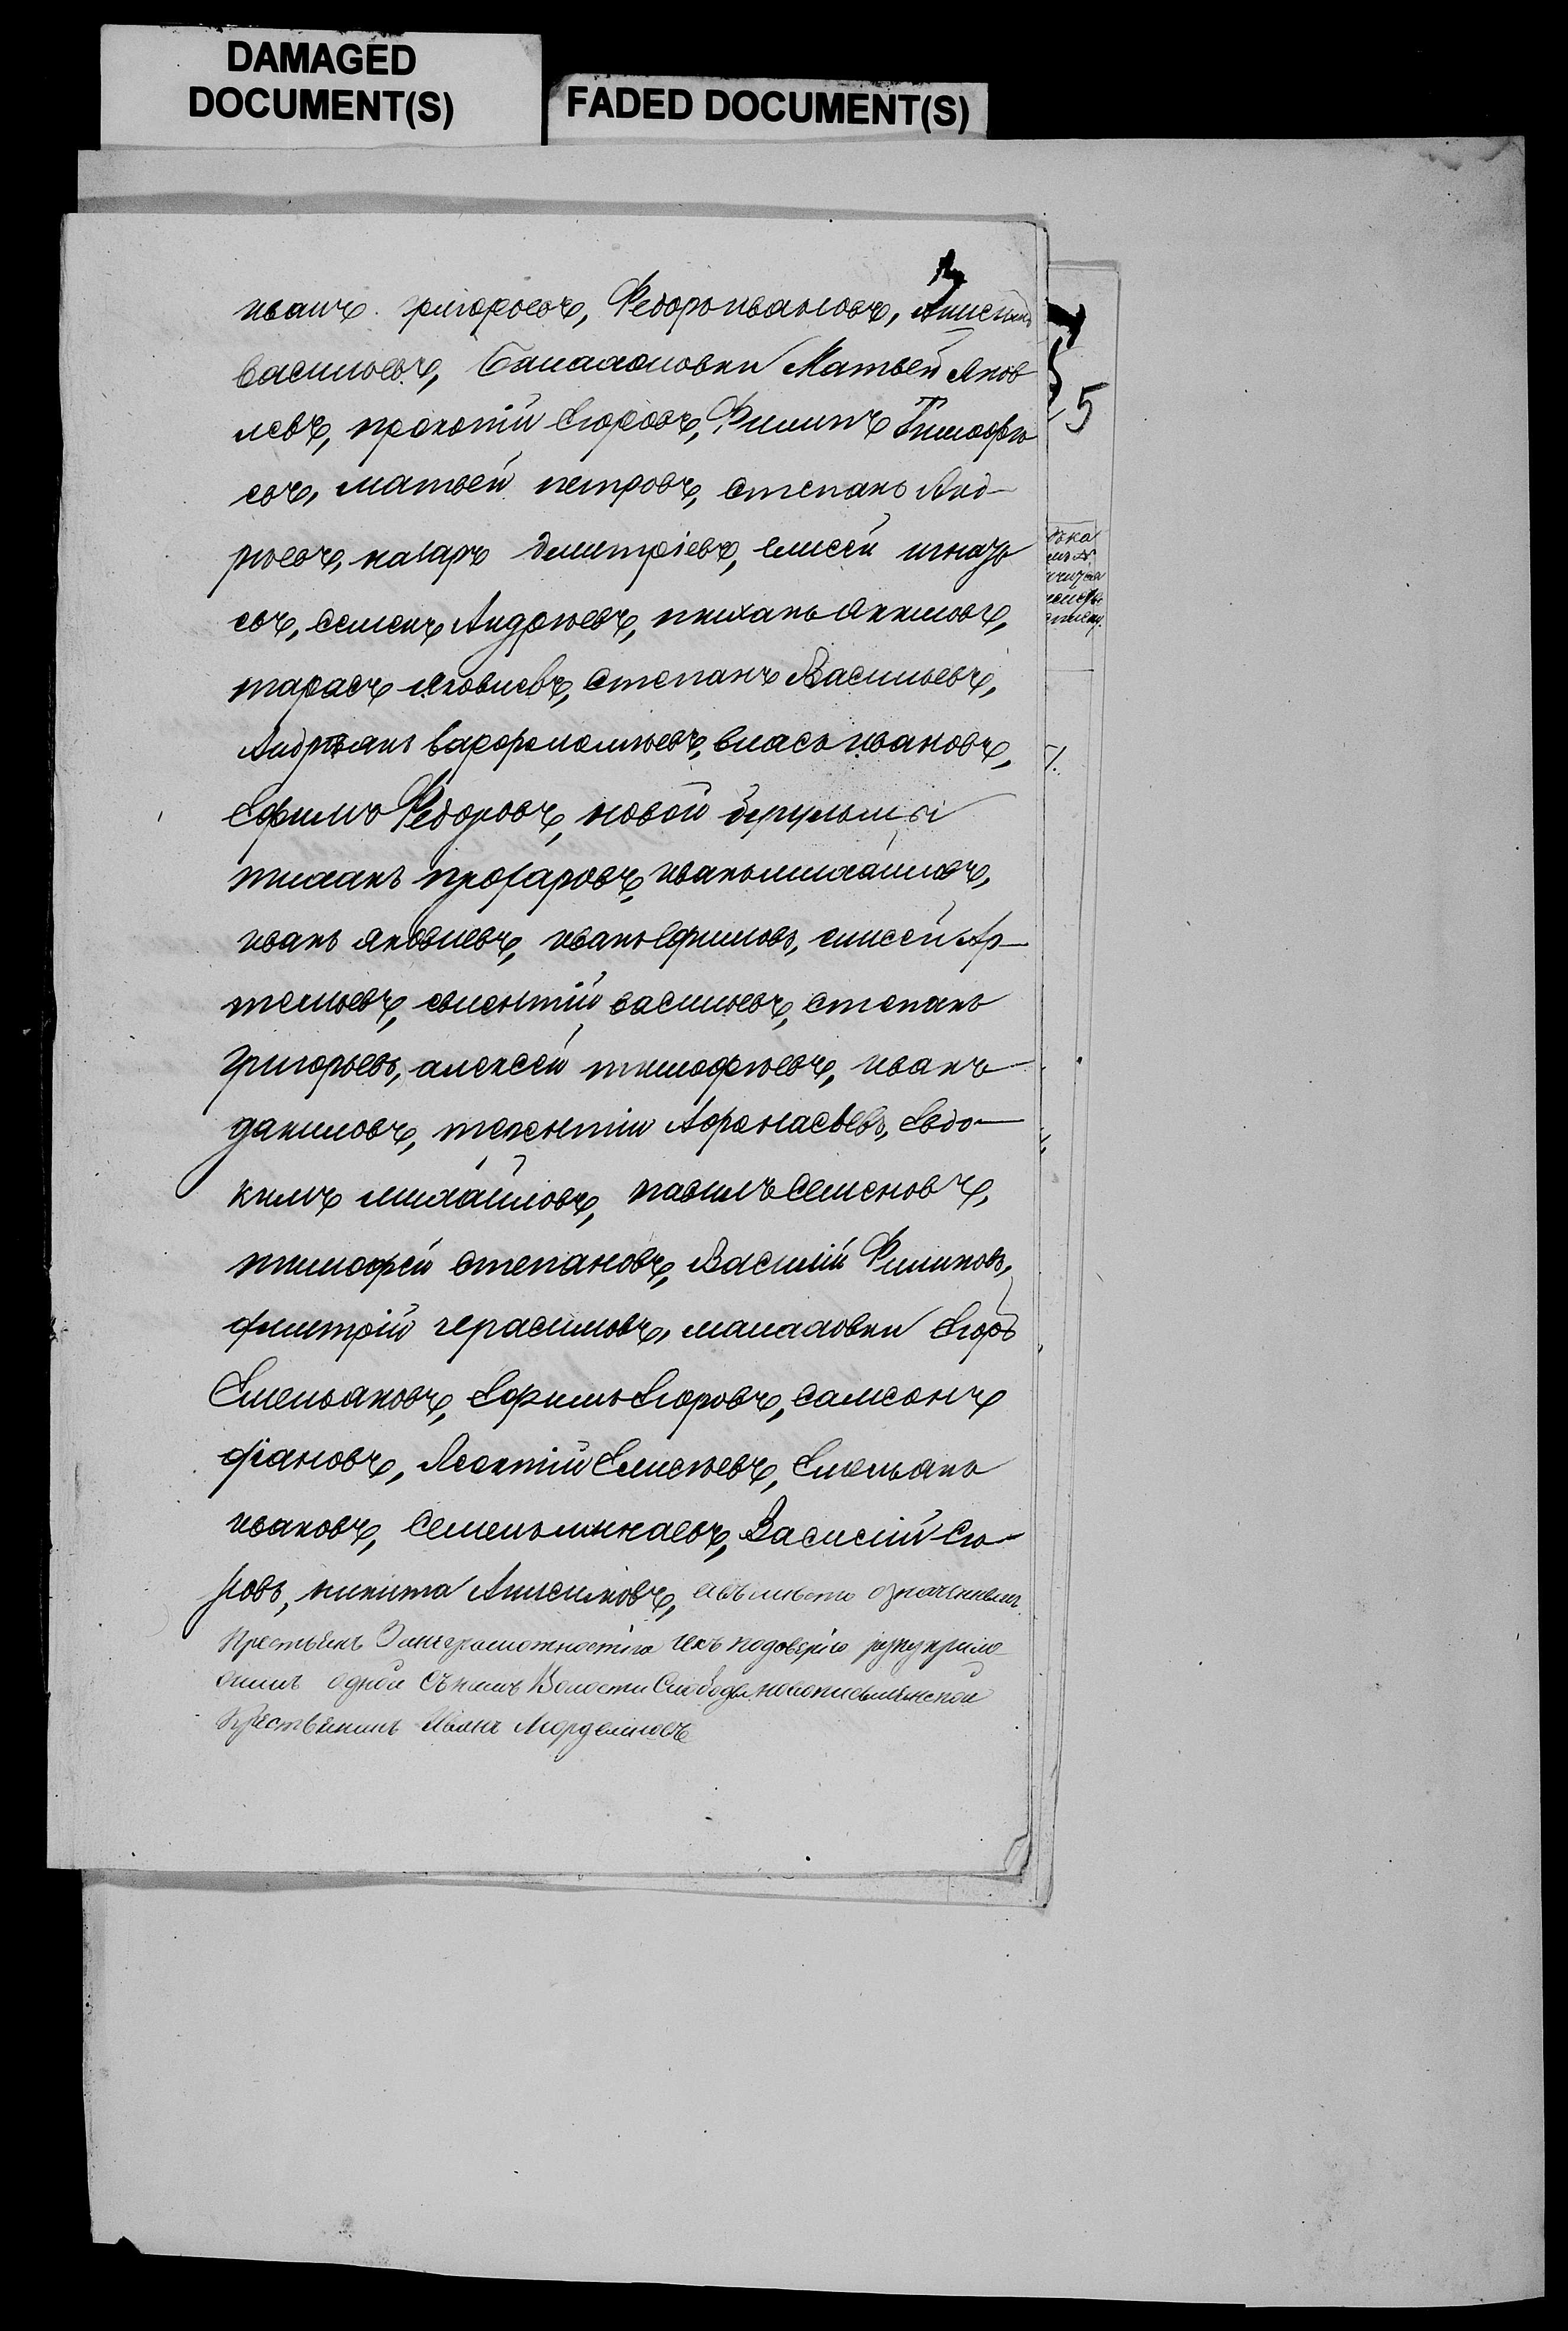 DAMAGED
DOCUMENT(S)
FADED DOCUMENT(S)
5
иванъ григорьевъ, Федоръ ивановъ, Анисимъ
васильевъ, Матвей Яков
левъ, прокопiй Егоровъ, Филипъ Тимофѣ
евъ, матвей петровъ, степанъ Анд-
рѣевъ, назаръ дмитрiевъ, елисей игнать
евъ, семенъ Андрѣевъ, тиханъ якимовъ,
тарасъ яковлевъ, степанъ Васильевъ,
Андрѣянъ варфоломѣевъ, власъ ивановъ,
Ефимъ Федоровъ, новой
тиханъ прохаровъ, иванъ михайловъ,
иванъ яковлевъ, иванъ Ефимовъ, елисей Ар-
темьевъ, васильевъ, степанъ
григорьевъ, алексей тимофѣевъ, иванъ
даниловъ, терентiй Афонасьевъ, Евдо-
кимъ михайловъ, павилъ Семеновъ,
тимофей степановъ, Василiй Филиповъ,
дмитрiй герасимовъ, Егоръ
Емельяновъ, Ефимъ Егоровъ, самсонъ
Леонтiй Елисѣевъ, Емельянъ
ивановъ, Семенъ минаевъ, Василiй Его-
ровъ, никита Анисимовъ, авъместо означенныхъ
крестьянъ Занеграмотностiю ихъ подоверiю руку прило
одной сними Волости Слободы
крестьянинъ Иванъ